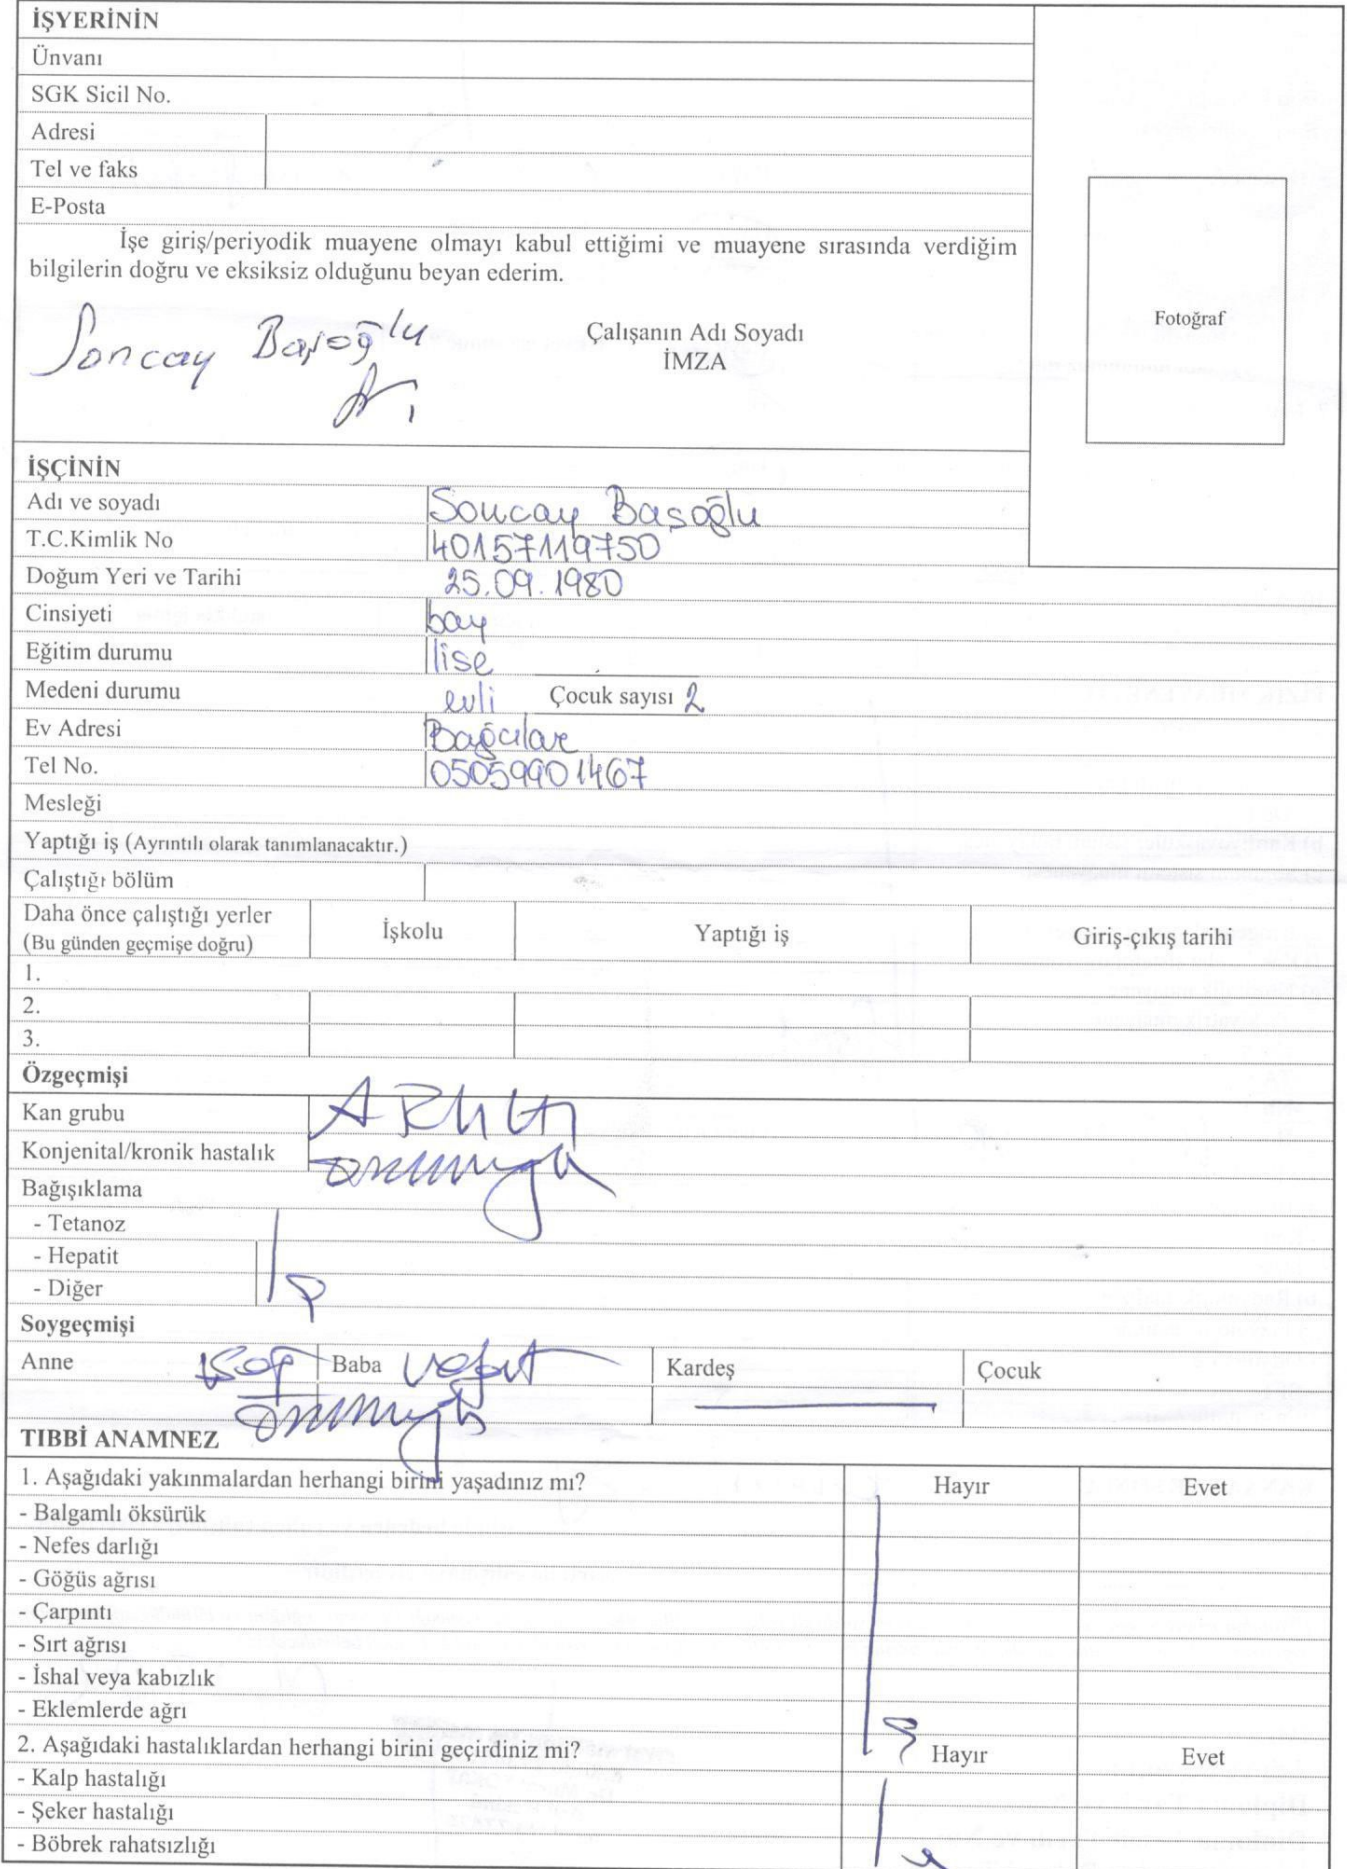 İŞYERİNİN
Ünvanı
SGK Sicil No.
Adresi
Tel ve faks
E-Posta
İşe giriş/periyodik muayene olmayı kabul ettiğimi ve muayene sırasında verdiğim
bilgilerin doğru ve eksiksiz olduğunu beyan ederim.
Fotoğraf
Soncay Başoğlu
Çalışanın Adı Soyadı
İMZA
İŞÇİNİN
Adı ve soyadı Soncay Basoğlu
T.C.Kimlik No 40157119750
Doğum Yeri ve Tarihi 25.09.1980
Cinsiyeti bay
Eğitim durumu lise
Medeni durumu evli Çocuk sayısı 2
Ev Adresi Bağcılar
Tel No. 05059901467
Mesleği
Yaptığı iş (Ayrıntılı olarak tanımlanacaktır.)
Çalıştığı bölüm
Daha önce çalıştığı yerler İşkolu Yaptığı iş Giriş-çıkış tarihi
(Bu günden geçmişe doğru)
1.
2.
3.
Özgeçmişi
Kan grubu A Rh (+)
Konjenital/kronik hastalık
Bağışıklama
- Tetanoz
- Hepatit
- Diğer
Soygeçmişi
Anne Baba vefat Kardeş Çocuk
TIBBİ ANAMNEZ
1. Aşağıdaki yakınmalardan herhangi birini yaşadınız mı? Hayır Evet
- Balgamlı öksürük
- Nefes darlığı
- Göğüs ağrısı
- Çarpıntı
- Sırt ağrısı
- İshal veya kabızlık
- Eklemlerde ağrı
2. Aşağıdaki hastalıklardan herhangi birini geçirdiniz mi? Hayır Evet
- Kalp hastalığı
- Şeker hastalığı
- Böbrek rahatsızlığı